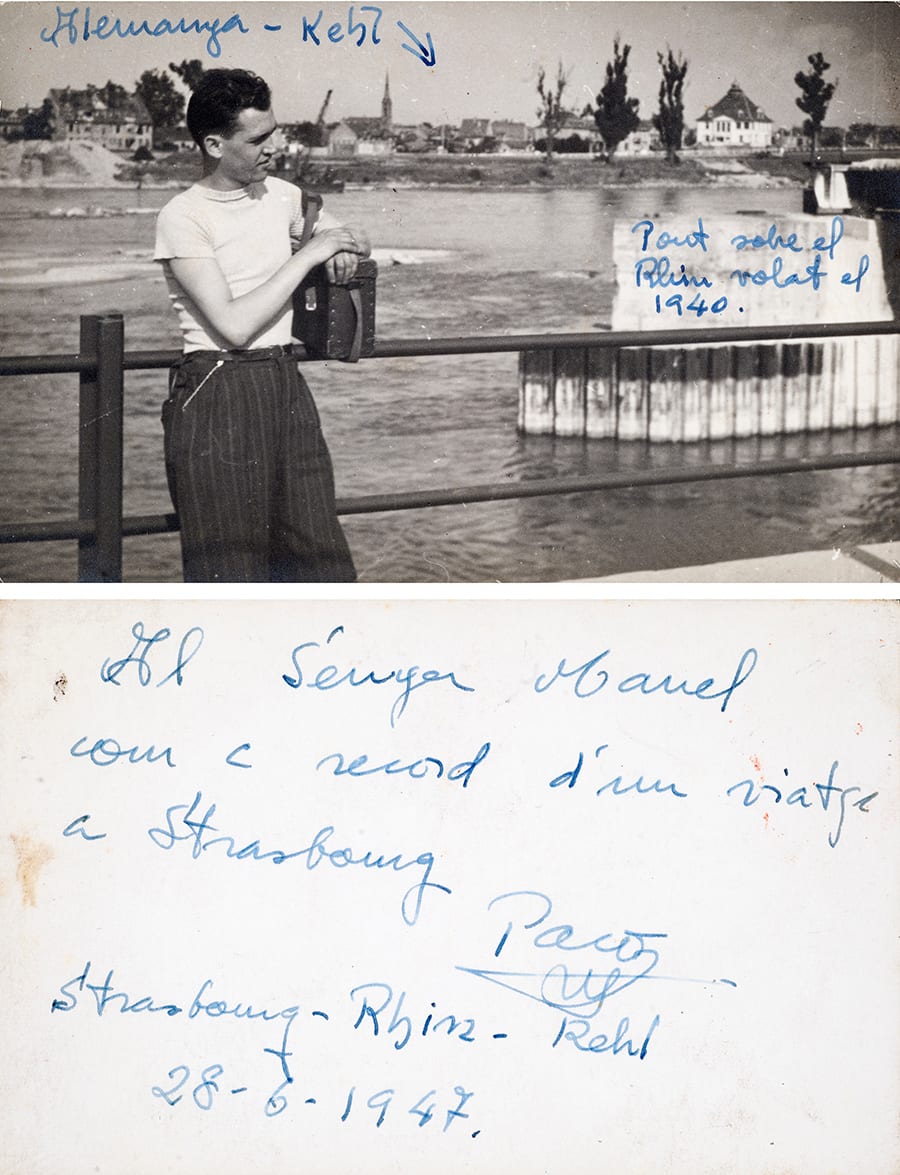 Alemanya - Kehl
Pont sobre el
Rhin volat el
1940.
Al Senyer Manel
com c record d'un viatge
a Strasbourg
Strasbourg - Rhin - Kehl
28-6-1947.